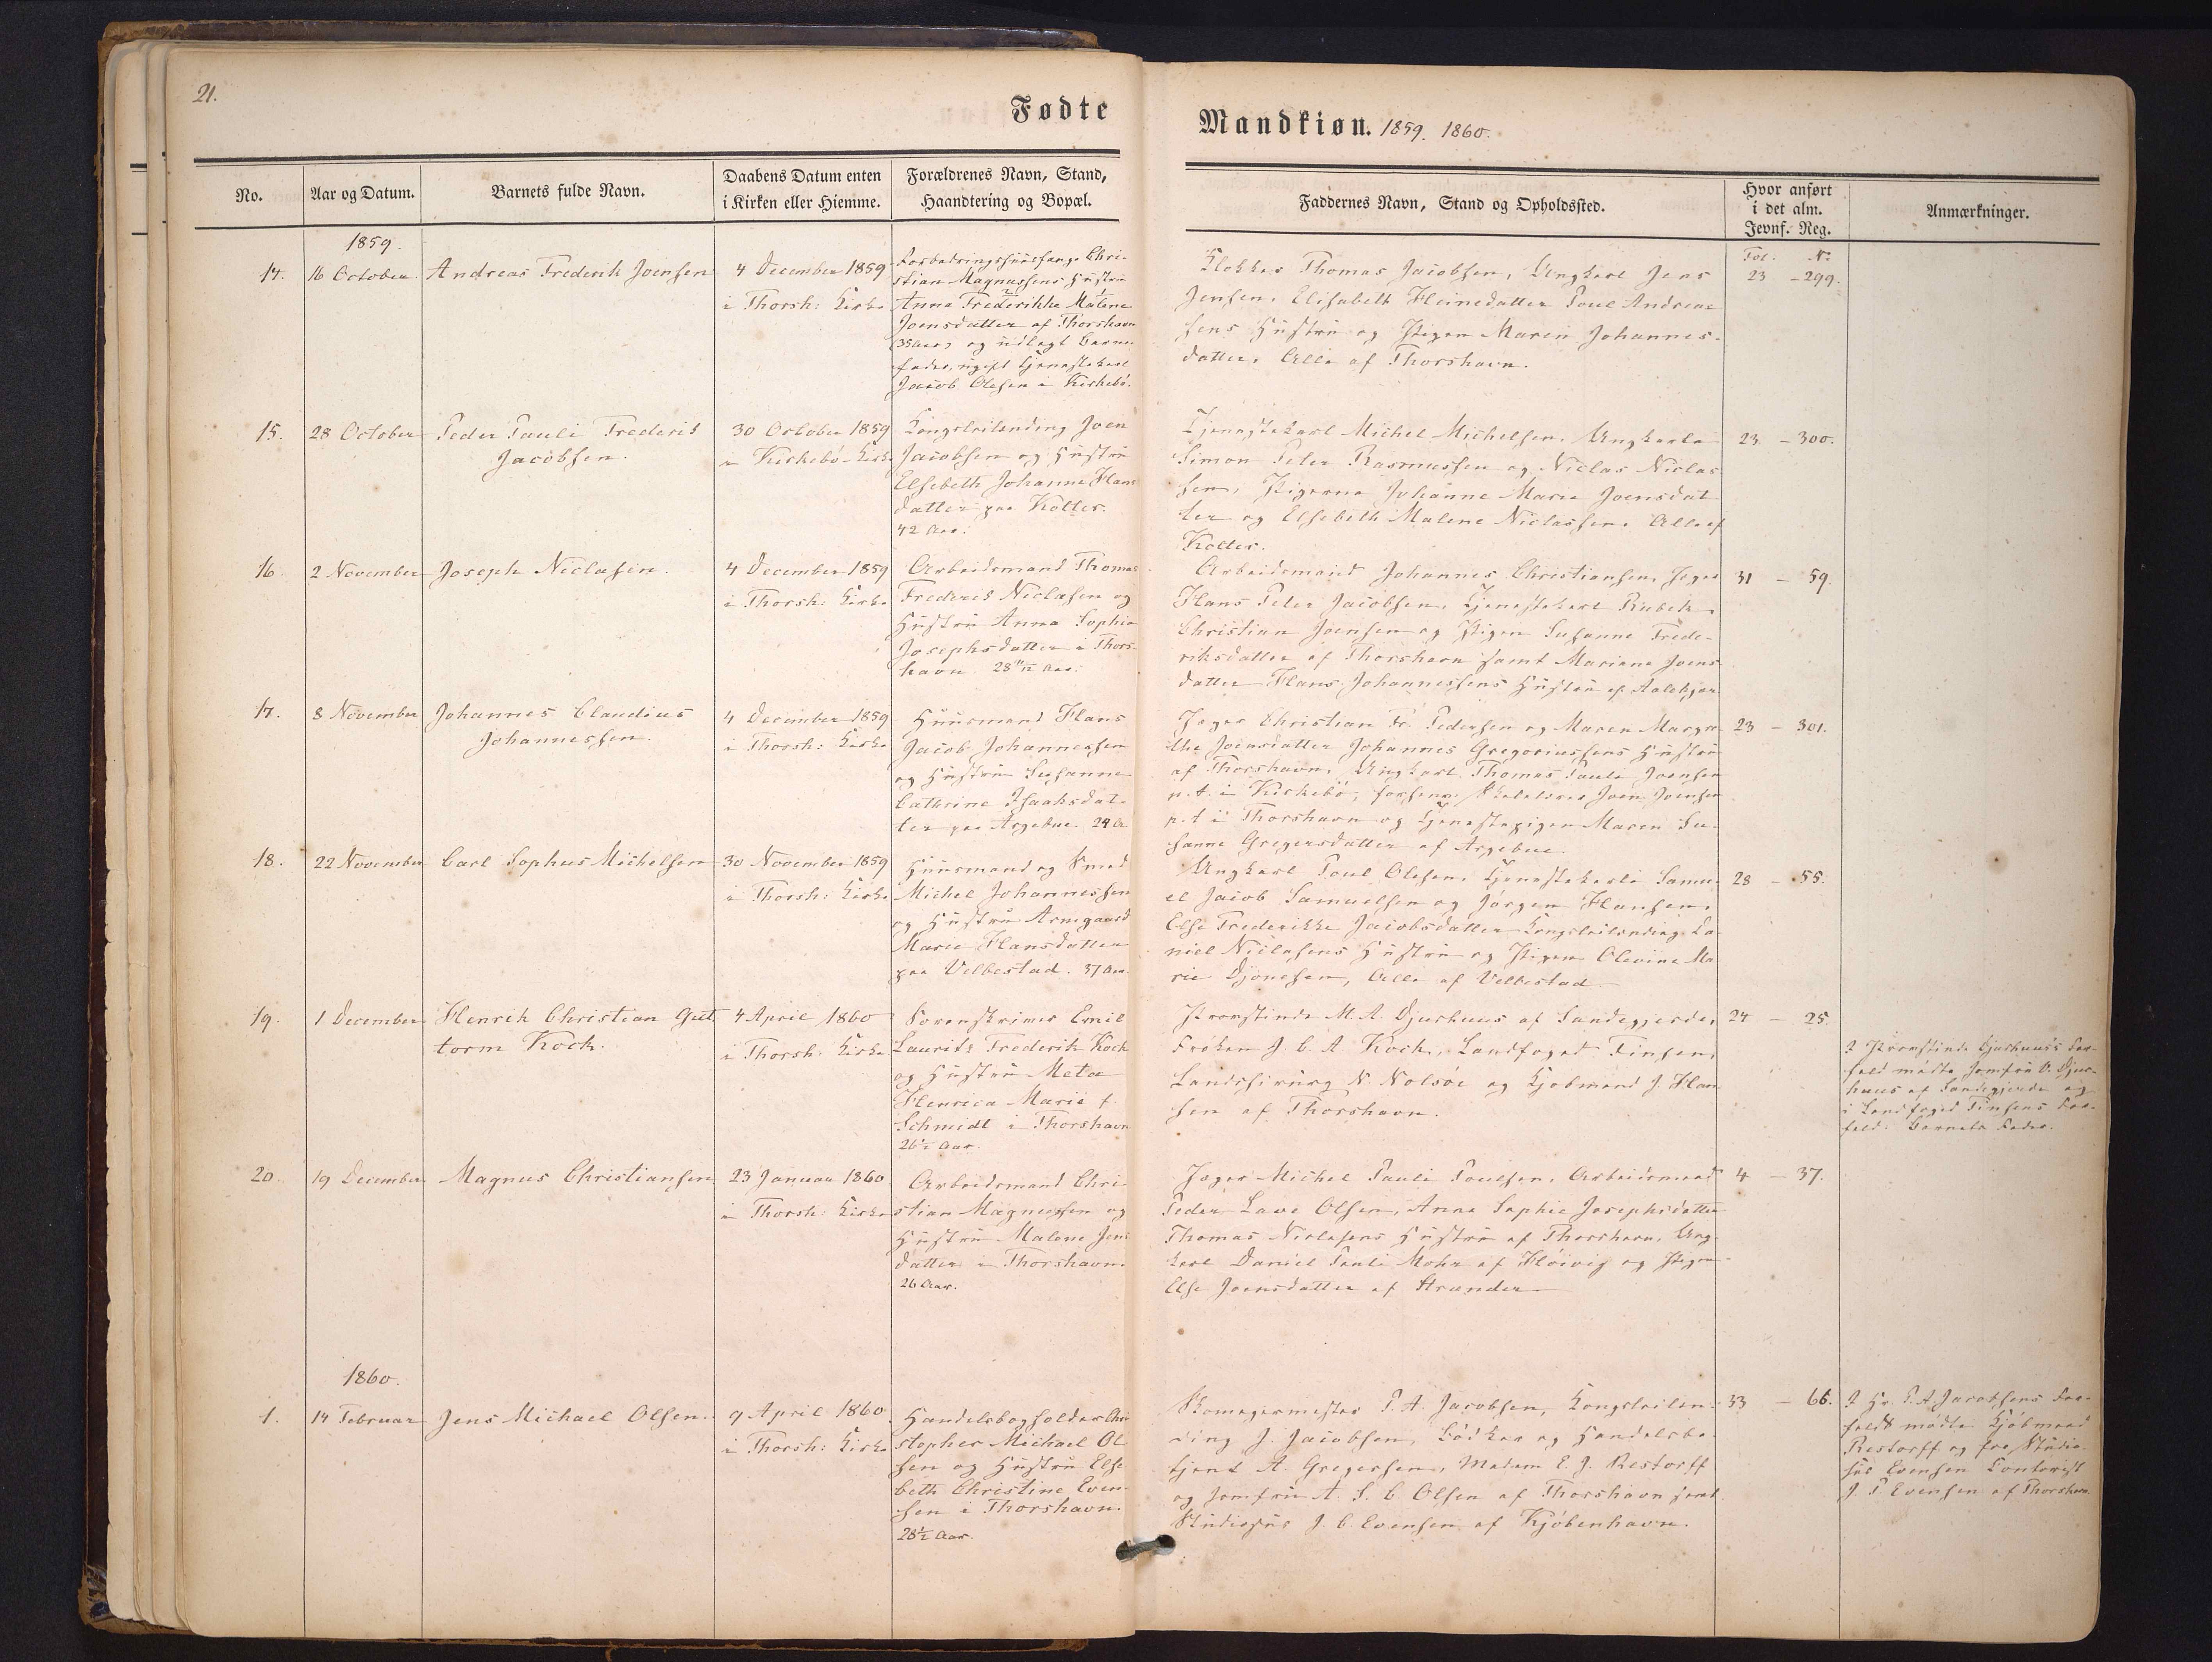 21.
Fødte
Mandkiøn. 1859. 1860.
No.
Aar og Datum.
Barnets fulde Navn.
Daabens Datum enten
i Kirken eller Hiemme.
Forældrenes Navn, Stand,
Haandtering og Bopæl.
Faddernes Navn, Stand og Opholdssted.
Hvor anført
i det alm.
Jevnf. Reg.
Anmærkninger.
1859.
14.
16 October
Andreas Frederik Joensen
4 December 1859
i Thorsh: Kirke
Chri-
stian Magnussens Hustru
Anna Frederikke Malene
Joensdatter af Thorshavn
(35 Aar) og udlagt Barne-
fader, ugift Tjenestekarl
Jacob Olesen i Kirkebö.
Klokker Thomas Jacobsen, Ungkarl Jens
Jensen, Elisabeth Heinedatter Poul Andrea-
sens Hustru og Pigen Maren Johannes-
datter, Alle af Thorshavn.
Fol. No
23 - 299.
15.
28 October
Peder Pauli Frederik
Jacobsen.
30 October 1859
i Kirkebö-Kirke
Kongsleilending Joen
Jacobsen og Hustru
Elsebeth Johanne Hans
datter paa Kolter.
42 Aar.
Tjenestekarl Michel Michelsen, Ungkarle
Simon Peter Rasmussen og Niclas Niclas-
sen, Pigerne Johanne Marie Joensdat-
ter og Elsebeth Malene Niclassen. Alle af
Kolter.
23 - 300.
16.
2 November
Joseph Niclasen.
4 December 1859
i Thorsh: Kirke
Arbeidsmand Thomas
Frederik Niclasen og
Hustru Anna Sophie
Josephsdatter i Thors-
havn. 28 11/12 Aar.
Arbeidsmand Johannes Christiansen, Jæger
Hans Peter Jacobsen, Tjenestekarl Rubek
Christian Joensen og Pigen Susanne Frede-
riksdatter af Thorshavn samt Mariane Joens-
datter Hans Johannesens Hustru af
31 - 59.
17.
8 November
Johannes Claudius
Johannessen.
4 December 1859
i Thorsh: Kirke
Huusmand Hans
Jacob Johannessen
og Hustru Susanne
Cathrine Isaaksdat-
ter paa Argebue. 29 A.
Jæger Christian Fr. Pedersen og Maren Margre-
the Joensdatter Johannes Gregoriussens Hustru
af Thorshavn, Ungkarl Thomas Pauli Joensen
p.t. i Kirkebö, Joen Joensen
p.t. i Thorshavn og Tjenestepigen Maren Su-
sanne Gregersdatter af Argebue.
23 - 301.
18.
22 November
Carl Sophus Michelsen
30 November 1859
i Thorsh: Kirke
Huusmand og Smed
Michel Johannessen
og Hustru Armgaard
Marie Hansdatter
paa Velbestad. 37 Aar.
Ungkarl Poul Olesen, Tjenestekarle Samu-
el Jacob Samuelsen og Jörgen Hansen,
Else Frederikke Jacobsdatter Kongsleilending Da-
niel Niclasens Hustru og Pigen Olevine Ma-
rie Djonesen, Alle af Velbestad.
28 - 55.
19.
1 December
Henrik Christian Gut
torm Koch.
4 April 1860
i Thorsh: Kirke
Sorenskriver Emil
Laurits Frederik Koch
og Hustru Meta
Henrica Marie f.
Schmidt i Thorshavn
26½ Aar.
Provstinde M. A. Djurhuus af Sandegjerde,
Fröken J. C. A. Koch, Landfoged Finsen,
Landchirurg N. Nolsöe og Kjöbmand J. Han-
sen af Thorshavn.
24 - 25.
I Provstinde Djurhuus's For-
fald mödte Jomfru Djur-
huus af Sandegjerde og
i Landfoged Finsens For-
fald: Barnets Fader.
20.
19 December
Magnus Christiansen
23 Januar 1860
i Thorsh: Kirke
Arbeidsmand Chri-
stian Magnussen og
Hustru Malene Jens
datter i Thorshavn.
26 Aar.
Jæger Michel Pauli Poulsen, Arbeidsmand
Peder Lave Olsen, Anna Sophie Josephsdatter
Thomas Niclasens Hustru af Thorshavn, Ung-
karl Daniel Pauli Mohr af Höivig og Pigen
Else Joensdatter af
4 - 37.
1860.
1.
14 Februar
Jens Michael Olsen.
9 April 1860
i Thorsh: Kirke
Handelsbogholder Chri
stopher Michael Ol-
sen og Hustru Else-
beth Christine Even-
sen i Thorshavn.
28½ Aar.
Skomagermester P. A. Jacobsen, Kongsleilen-
ding J. Jacobsen, Bödker og Handelsbe-
tjent A. Gregersen, Madam E. J. Restorff
og Jomfru A. S. C. Olsen af Thorshavn samt
Studiosus J. C. Evensen af Kjöbenhavn.
33 - 66.
I Hr. P. A. Jacobsens For-
fald mödte Kjöbmand
Restorff og for Studio-
sus Evensen Contorist
J. P. Evensen af Thorshavn.